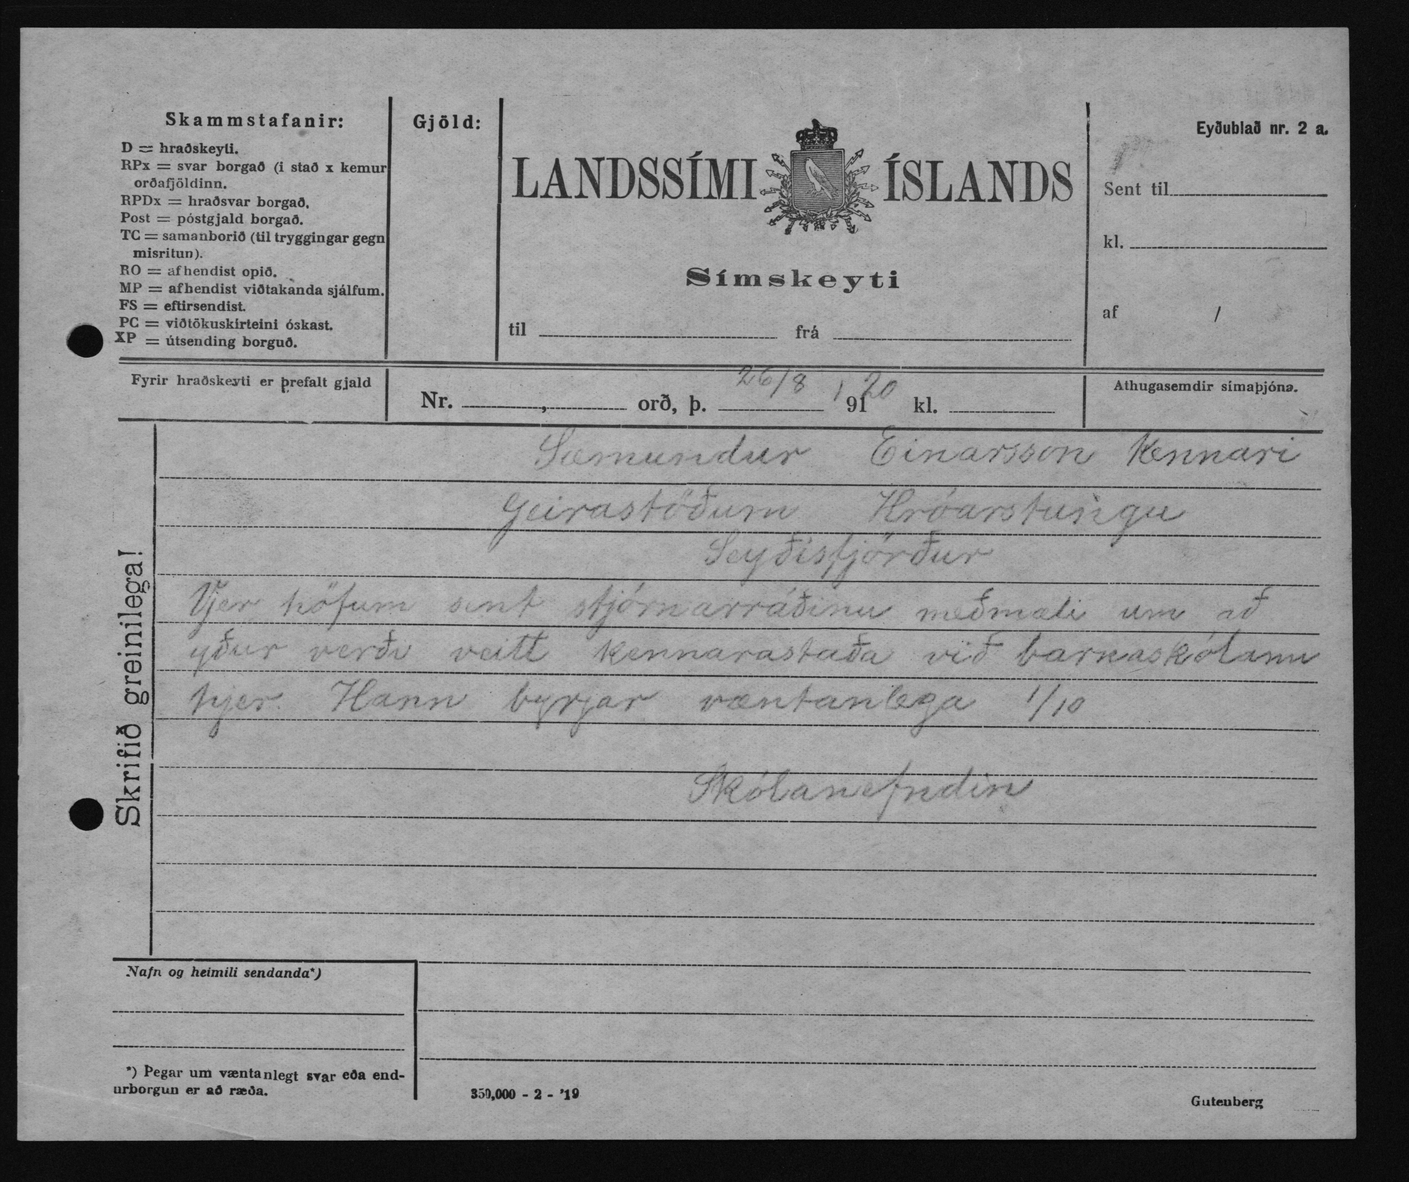 Skammstafanir:
D = hraðskeyti.
RPx = svar borgað (i stað x kemur
orðafjöldinn.
RPDx = hraðsvar borgað.
Post = póstgjald borgað.
TC = samanborið (til tryggingar gegn
misritun).
RO = afhendist opið.
MP = afhendist viðtakanda sjálfum.
FS = eftirsendist.
PC = viðtökuskirteini óskast.
XP = útsending borguð.
Gjöld:
LANDSSÍMI ÍSLANDS
Símskeyti
til frá
Eyðublað nr. 2 a.
Sent til
kl.
af /
Fyrir hraðskeyti er þrefalt gjald
Nr. , orð, þ. 26/8 191 20 kl.
Athugasemdir símaþjóna.
Skrifið greinilega!
Sæmundur Einarsson kennari
Geirastöðum Hróarstungu
Seyðisfjörður
Vjer höfum sent stjórnarráðinu meðmæli um að
yður verði veitt kennarastaða við barnaskólann
hjer. Hann byrjar væntanlega 1/10
Skólanefndin
Nafn og heimili sendanda*)
*) Þegar um væntanlegt svar eða end-
urborgun er að ræða.
350,000 - 2 - '19
Gutenberg